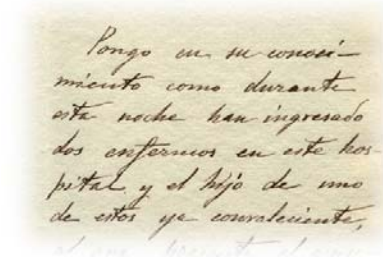 Pongo en su conoci-
miento como durante
esta noche han ingresado
dos enfermos en este hos-
pital y el hijo de uno
de estos ya convaleciente,